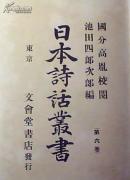 國分高胤校閱
池田四郎次郎編
日本詩話叢書
第六卷
東京
文會堂書店發行